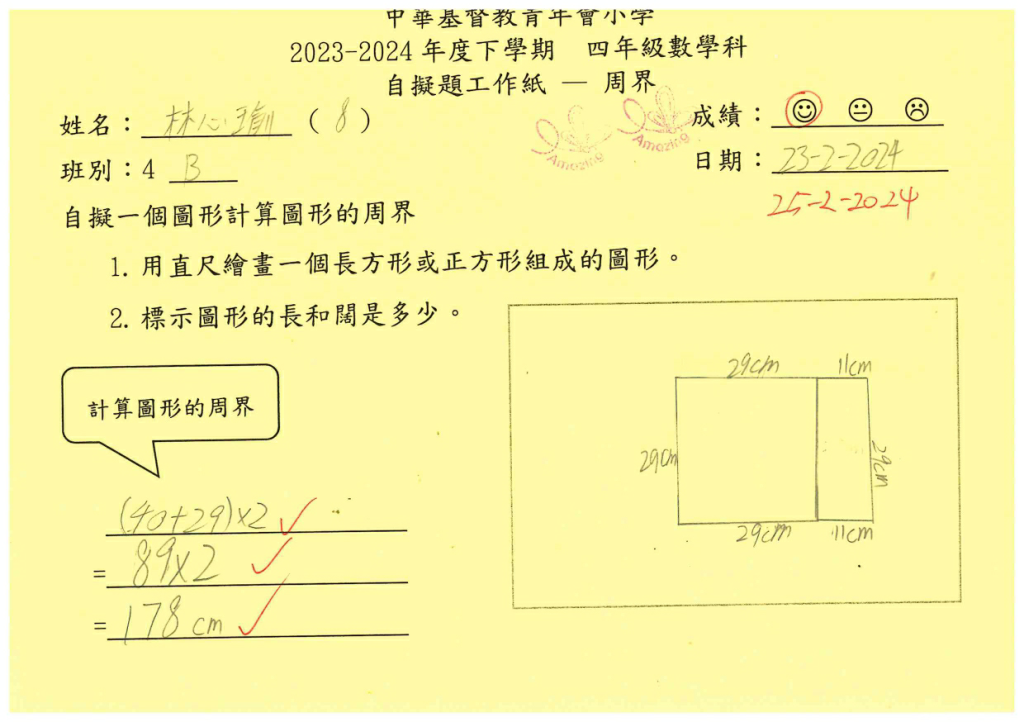 中華基督教青年會小學
2023-2024 年度下學期 四年級數學科
自擬題工作紙 — 周界
姓名：林心瑜 (8)
成績：
Amazing Amazing
班別：4 B
日期：23-2-2024
25-2-2024
自擬一個圖形計算圖形的周界
1. 用直尺繪畫一個長方形或正方形組成的圖形。
2. 標示圖形的長和闊是多少。
計算圖形的周界
29cm 11cm
29cm 29cm
29cm 11cm
(40+29)×2
= 89×2
= 178 cm